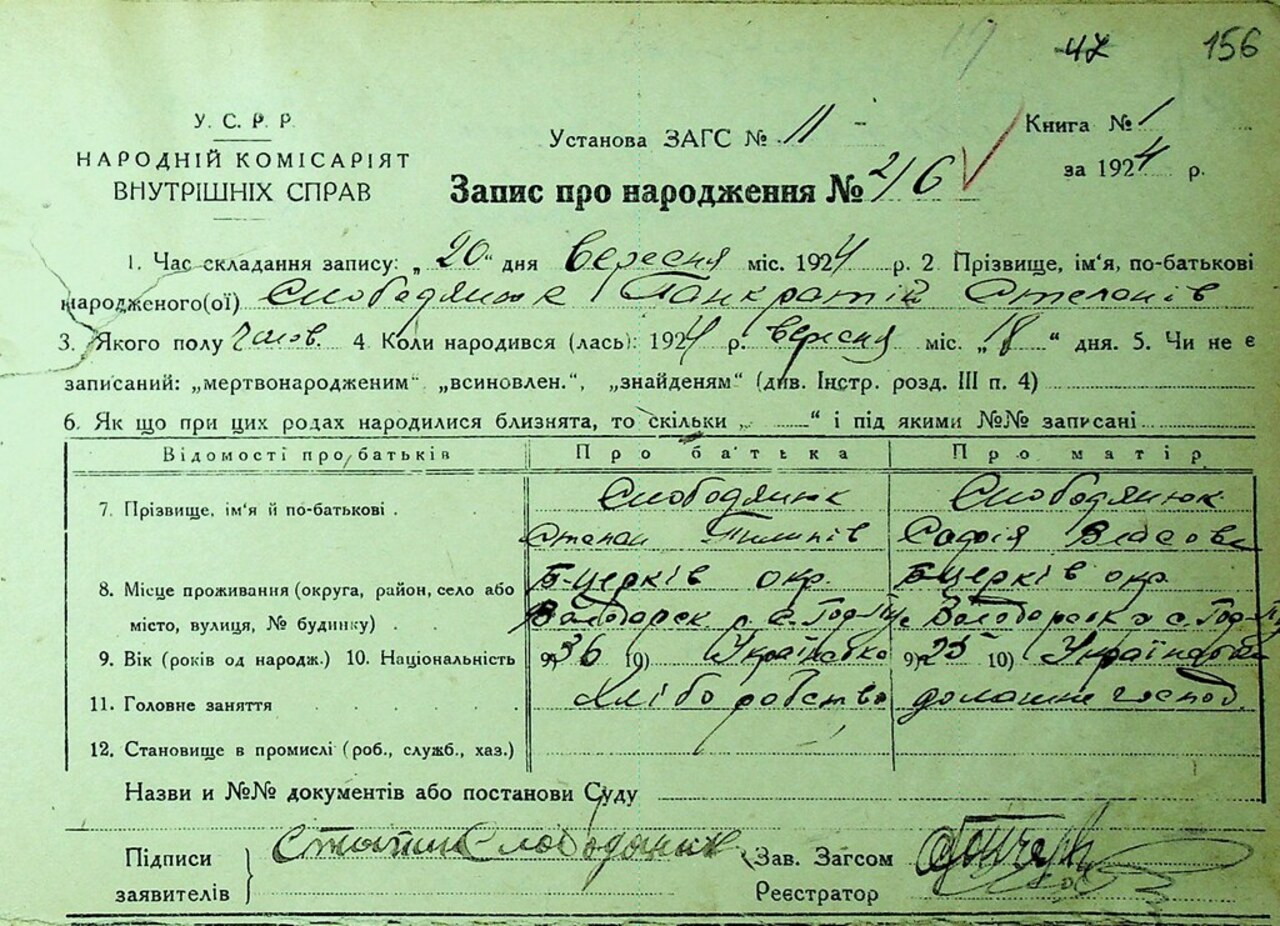 17 47 156
У. С. Р. Р.
НАРОДНІЙ КОМІСАРІЯТ
ВНУТРІШНІХ СПРАВ
Установа ЗАГС № 11
Книга № 1
за 1924 р.
Запис про народження № 216
1. Час складання запису: „20“ дня вересня міс. 1924 р. 2 Прізвище, ім'я, по-батькові
народженого(ої) Слободянюк Панкратій Степанів
3. Якого полу чолов. 4 Коли народився (лась): 1924 р. вересня міс. „18“ дня. 5. Чи не є
записаний: „мертвонародженим“ „всиновлен.“, „знайденям“ (див. Інстр. розд. III п. 4)
6. Як що при цих родах народилися близнята, то скільки „ “ і під якими №№ записані
Відомості про батьків Про батька Про матір
7. Прізвище, ім'я й по-батькові . Слободянюк Слободянюк
Степан Пилипів Софія Власова
8. Місце проживання (округа, район, село або Б-Церків окр. Б-Церків окр.
місто, вулиця, № будинку) . Володарск р. с. Володарск р. с.
9. Вік (років од народж.) 10. Національність 9) 36 10) Українська 9) 25 10) Українська
11. Головне заняття Хліборобство домашнє господ.
12. Становище в промислі (роб., служб., хаз.)
Назви и №№ документів або постанови Суду
Підписи
заявителів
Слободяник
Зав. Загсом
Реєстратор